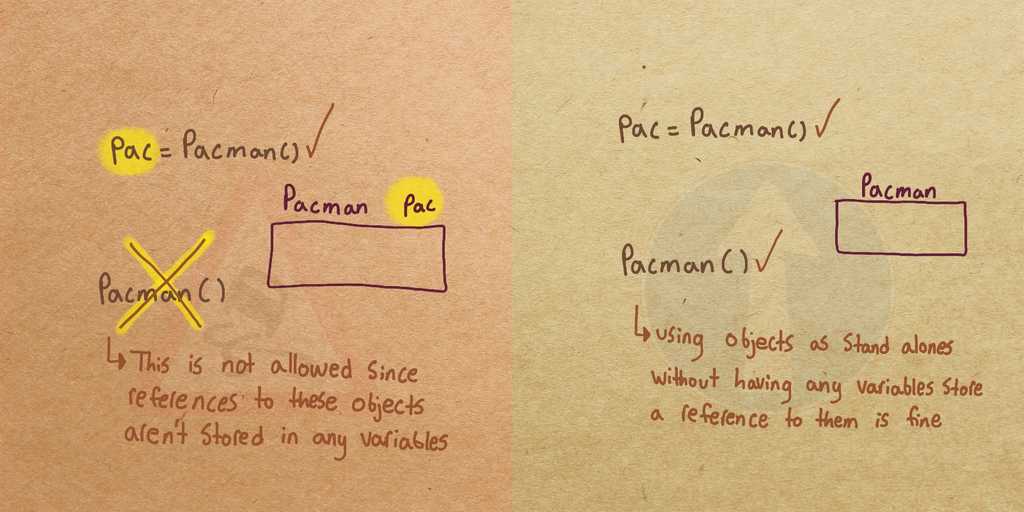 Pac = Pacman()
Pacman Pac
Pacman()
This is not allowed since
references to these objects
aren't stored in any variables
Pac = Pacman()
Pacman
Pacman()
using objects as stand alones
without having any variables store
a reference to them is fine